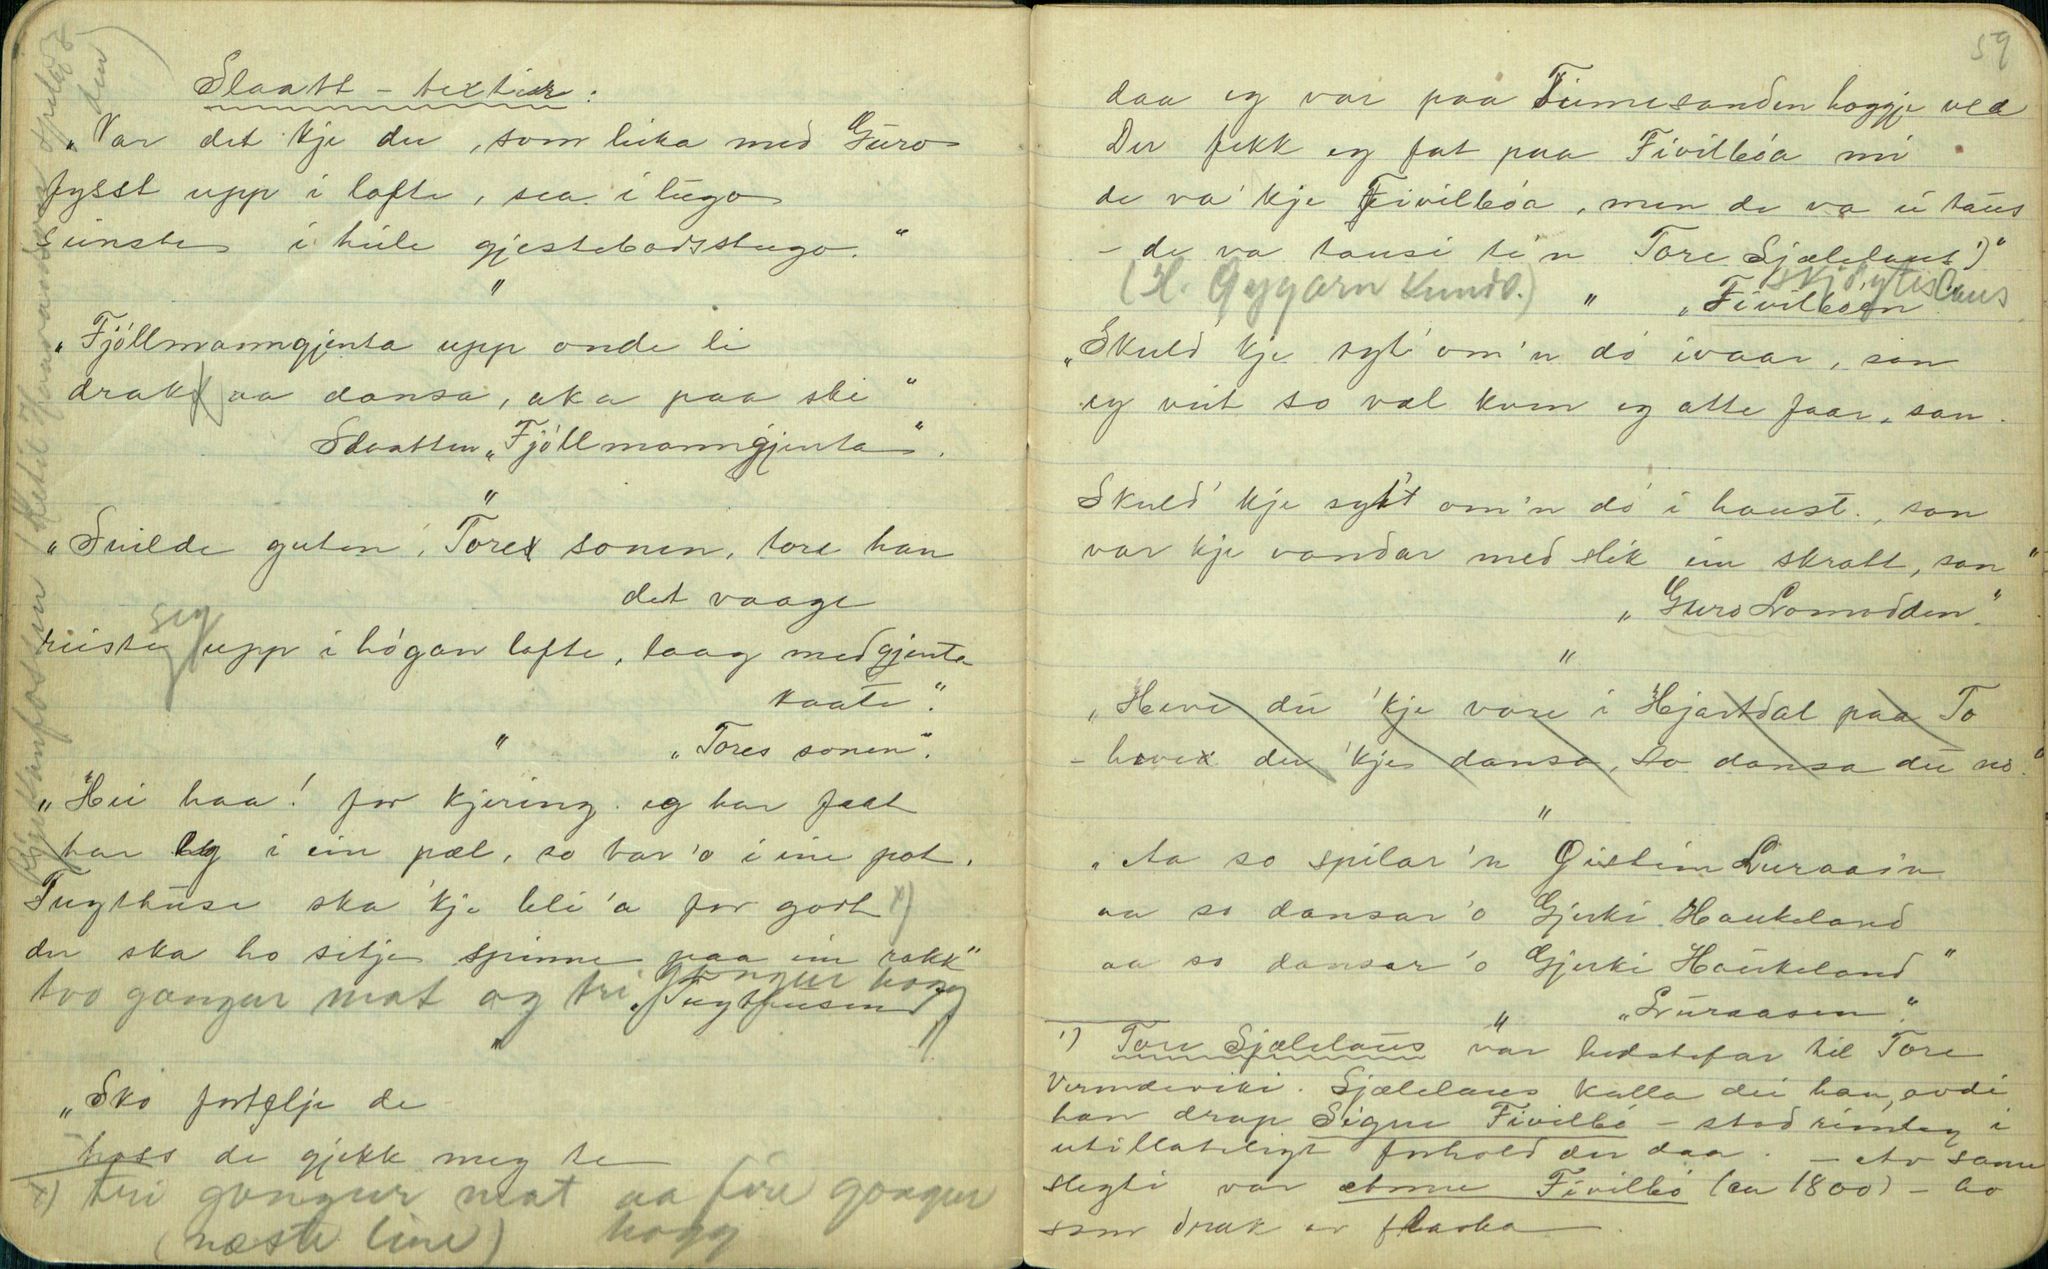 Slaatt-textir:
"Var det kje du, som leika med Guro
fysst upp i lofte, sea i lugo
sinste i hule gjestebodsstugo."
"
"Fjöllmanngjenta upp onde li
drakk aa dansa, aka paa ski"
Slaatten "Fjöllmanngjenta".
"
"Snilde guten, Tores sonen, tore han
det vaage
reiste seg upp i högan lofte, laag med gjenta
kaate".
" "Tores sonen".
"Hei haa! for kjering eg har faat
har eg i ein pæl, so har 'o i ine pot.
Tugthuse ska 'kje bli 'a for godt x)
der ska ho sitje spinne paa ein rokk"
tvo gongur mat og tri gongur hogg
"Tugthusen"
"
"Sko fortelje de
hoss de gjekk meg te
x) tri gongur mat aa fire gongur
(næste line) hogg
59
daa eg var paa Tinnesanden hoggje ved
Der fekk eg fat paa Fivilböa mi
de va' kje Fivilböa, men de va ei taus
- de va tausi te'n Tore Sjælelaus 1)"
(H. Gygarn Kunds.) " "Fivilböen"
"Skuld' kje syt' om'n dö ivaar, san
eg veit so væl kvem eg atte faar, san.
Skuld' kje syt't om'n dö i haust, san
var kje vandar med slik ein skratt, san"
"Guro Lomodden."
"
"Heve du 'kje vore i Hjartdal paa To
- heve du 'kje dansa, so dansa du no."
"
"Aa so spilar'n Øistein Luraasin
aa so dansar'o Gjerki Haukeland
aa so dansar'o Gjerki Haukeland"
" "Luraasen".
1) Tore Sjælelaus var bedstefar til Tore
Vermdeviki. Sjælelaus kalla dei han, avdi
han drap Signe Fivilbö - stod rimeleg i
utillateligt forhold der daa. - Av same
slegti var Anne Fivilbö (ca 1800) - ho
som drak av flaska